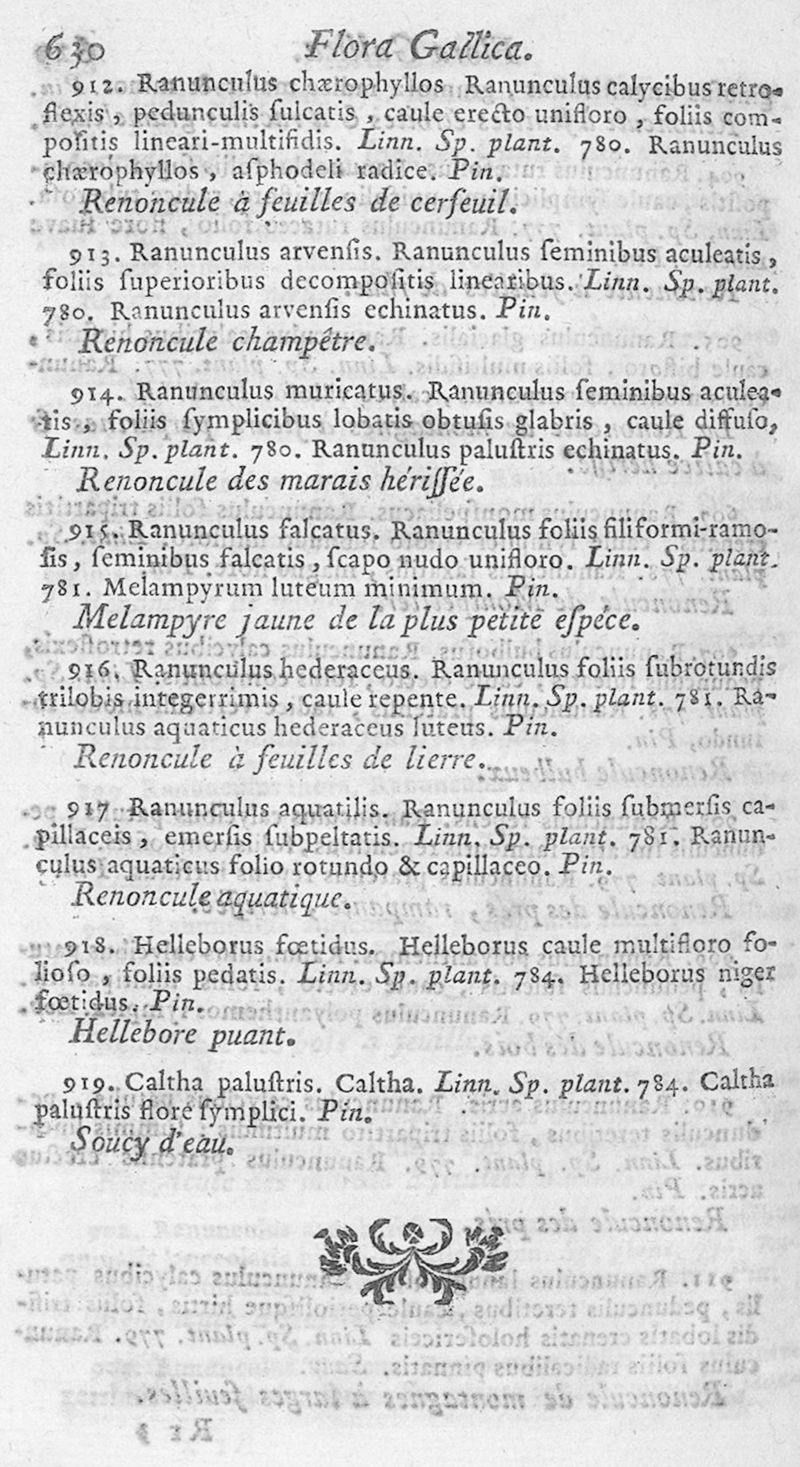 630 Flora Gallica.
912. Ranunculus chærophyllos Ranunculus calycibus retro-
flexis, pedunculis ſulcatis, caule erecto unifloro, foliis com-
poſitis lineari-multifidis. Linn. Sp. plant. 780. Ranunculus
chærophyllos, aſphodeli radice. Pin.
Renoncule à feuilles de cerfeuil.
913. Ranunculus arvenſis. Ranunculus ſeminibus aculeatis,
foliis ſuperioribus decompoſitis linearibus. Linn. Sp. plant.
780. Ranunculus arvenſis echinatus. Pin.
Renoncule champêtre.
914. Ranunculus muricatus. Ranunculus ſeminibus aculea-
tis, foliis ſymplicibus lobatis obtuſis glabris, caule diffuſo,
Linn. Sp. plant. 780. Ranunculus paluſtris echinatus. Pin.
Renoncule des marais hériſſée.
915. Ranunculus falcatus. Ranunculus foliis filiformi-ramo-
ſis, ſeminibus falcatis, ſcapo nudo unifloro. Linn. Sp. plant.
781. Melampyrum luteum minimum. Pin.
Melampyre jaune de la plus petite eſpéce.
916. Ranunculus hederaceus. Ranunculus foliis ſubrotundis
trilobis integerrimis, caule repente. Linn. Sp. plant. 781. Ra-
nunculus aquaticus hederaceus luteus. Pin.
Renoncule à feuilles de lierre.
917 Ranunculus aquatilis. Ranunculus foliis ſubmerſis ca-
pillaceis, emerſis ſubpeltatis. Linn. Sp. plant. 781. Ranun-
culus aquaticus folio rotundo & capillaceo. Pin.
Renoncule aquatique.
918. Helleborus fœtidus. Helleborus caule multifloro fo-
lioſo, foliis pedatis. Linn. Sp. plant. 784. Helleborus niger
fœtidus. Pin.
Hellebore puant.
919. Caltha paluſtris. Caltha. Linn. Sp. plant. 784. Caltha
paluſtris flore ſymplici. Pin.
Soucy d'eau.